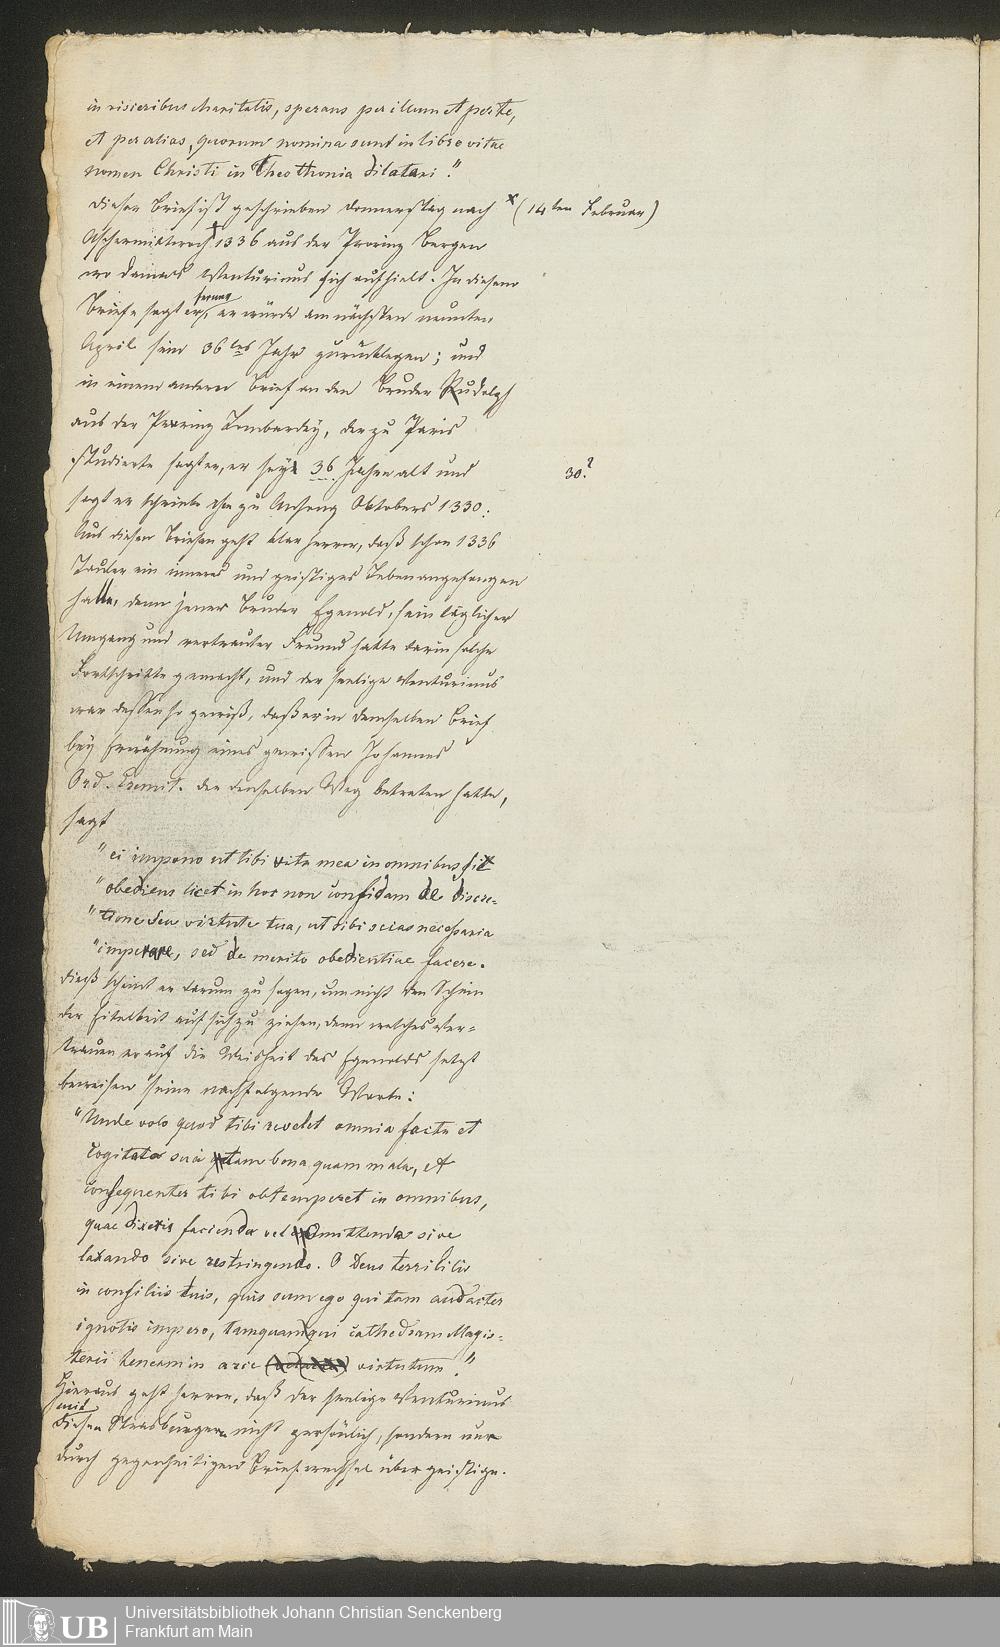 in visceribus charitatis, sperans per illum et per te,
et per alios, quorum nomina sunt in libro vitae
nomen Christi in Theothonia dilatari."
dieser Brief ist geschrieben Donnerstag nach x (14ten Februar)
Aschermittwoch 1336 aus der Provinz Bergen
wo damals Venturinus sich aufhielt. In diesem
Briefe sagt er, ferner er würde am nächsten neunten
April sein 36tes Jahr zurücklegen; und
in einem andern Brief an den Bruder Rudolph
aus der Provinz Lombardey, der zu Paris
studierte sagt er, er sey 36 Jahre alt und 30?
sagt er schriebe ehe zu Anfang Oktobers 1330.
Aus diesen Briefen geht klar hervor, daß schon 1336
Tauler ein inneres und geistiges Leben angefangen
hatte, denn jener Bruder Egenold, sein täglicher
Umgang und vertrauter Freund hatte darin solche
Fortschritte gemacht, und der seelige Venturinus
war dessen so gewiß, daß er in demselben Brief
bey Erwähnung eines gewissen Johannes
Ord. Eremit. der denselben Weg betreten hatte,
sagt
"ei impono ut tibi vita mea in omnibus sit
"obediens licet in hoc non confidam de discre=
"tione seu virtute tua, ut sibi scias necessaria
"imperare, sed de merito obedientiae facere.
dieß scheint er darum zu sagen, um nicht den Schein
der Eitelkeit auf sich zu ziehen, denn welches Ver=
trauen er auf die Weisheit des Egenolds setzt
beweisen seine nachfolgende Worte:
"Unde volo quod tibi revelet omnia facta et
cogitata sua tam bona quam mala, et
consequenter tibi obtemperet in omnibus,
quae dixeris facienda vel omittenda sive
laxando sive restringendo. O Deus terribilis
in consiliis tuis, quis sum ego qui tam audacter
ignotis impero, tamquam qui cathedram Magis=
terii tenerem in arce virtutum."
Hieraus geht hervor, daß der seelige Venturinus
mit diesen Strasburgern nicht persönlich, sondern nur
durch gegenseitigen Briefwechsel über geistige.
Universitätsbibliothek Johann Christian Senckenberg
Frankfurt am Main
UB